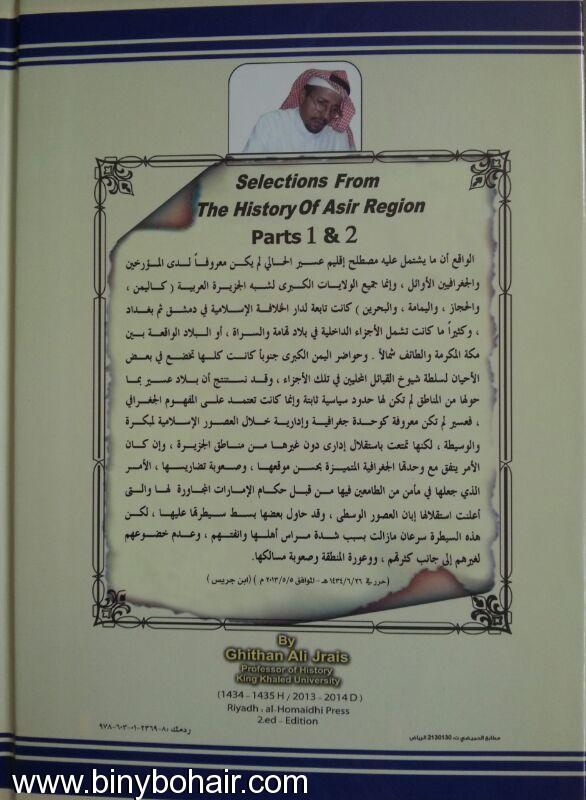 Selections From
The History Of Asir Region
Parts 1 & 2
الواقع أن ما يشتمل عليه مصطلح إقليم عسير الحالي لم يكن معروفاً لدى المؤرخين
والجغرافيين الأوائل ، وإنما جميع الولايات الكبرى لشبه الجزيرة العربية ( كاليمن ،
والحجاز ، واليمامة ، والبحرين ) كانت تابعة لدار الخلافة الإسلامية في دمشق ثم بغداد
، وكثيراً ما كانت تشمل الأجزاء الداخلية في بلاد تهامة والسراة ، أو البلاد الواقعة بين
مكة المكرمة والطائف شمالاً . وحواضر اليمن الكبرى جنوباً كانت كلها تخضع في بعض
الأحيان لسلطة شيوخ القبائل المحليين في تلك الأجزاء ، وقد نستنتج أن بلاد عسير بما
حولها من المناطق لم تكن لها حدود سياسية ثابتة وإنما كانت تعتمد على المفهوم الجغرافي
، فعسير لم تكن معروفة كوحدة جغرافية وإدارية خلال العصور الإسلامية المبكرة
والوسيطة ، لكنها تمتعت باستقلال إدارى دون غيرها من مناطق الجزيرة ، وإن كان
الأمر يتفق مع وحدتها الجغرافية المتميزة بحسن موقعها ، وصعوبة تضاريسها ، الأمر
الذي جعلها في مأمن من الطامعين فيها من قبل حكام الإمارات المجاورة لها والتى
أعلنت استقلالها إبان العصور الوسطى ، وقد حاول بعضها بسط سيطرتها عليها ، لكن
هذه السيطرة سرعان مازالت بسبب شدة مراس أهلها وانفتهم ، وعدم خضوعهم
لغيرهم إلى جانب كثرتهم ، ووعورة المنطقة وصعوبة مسالكها.
(حرر في ١٤٣٤/٦/٢٦ هـ - الموافق ٢٠١٣/٥/٥ م ) (ابن جريس )
By
Ghithan Ali Jrais
Professor of History
King Khaled University
(1434 - 1435 H / 2013 - 2014 D)
Riyadh : al-Homaidhi Press
2.ed - Edition
ردمك: ٨-٢٣٦٩-٠١-٦٠٣-٩٧٨
مطابع الحميضي ت: 2130130 الرياض
www.binybohair.com